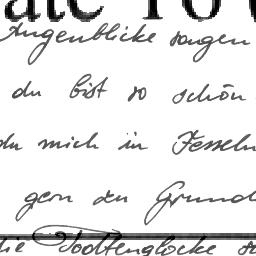 ate To
Augenblicke sagen
du bist so schön
du mich in Fesseln
gern zu Grund
die Todtenglocke s